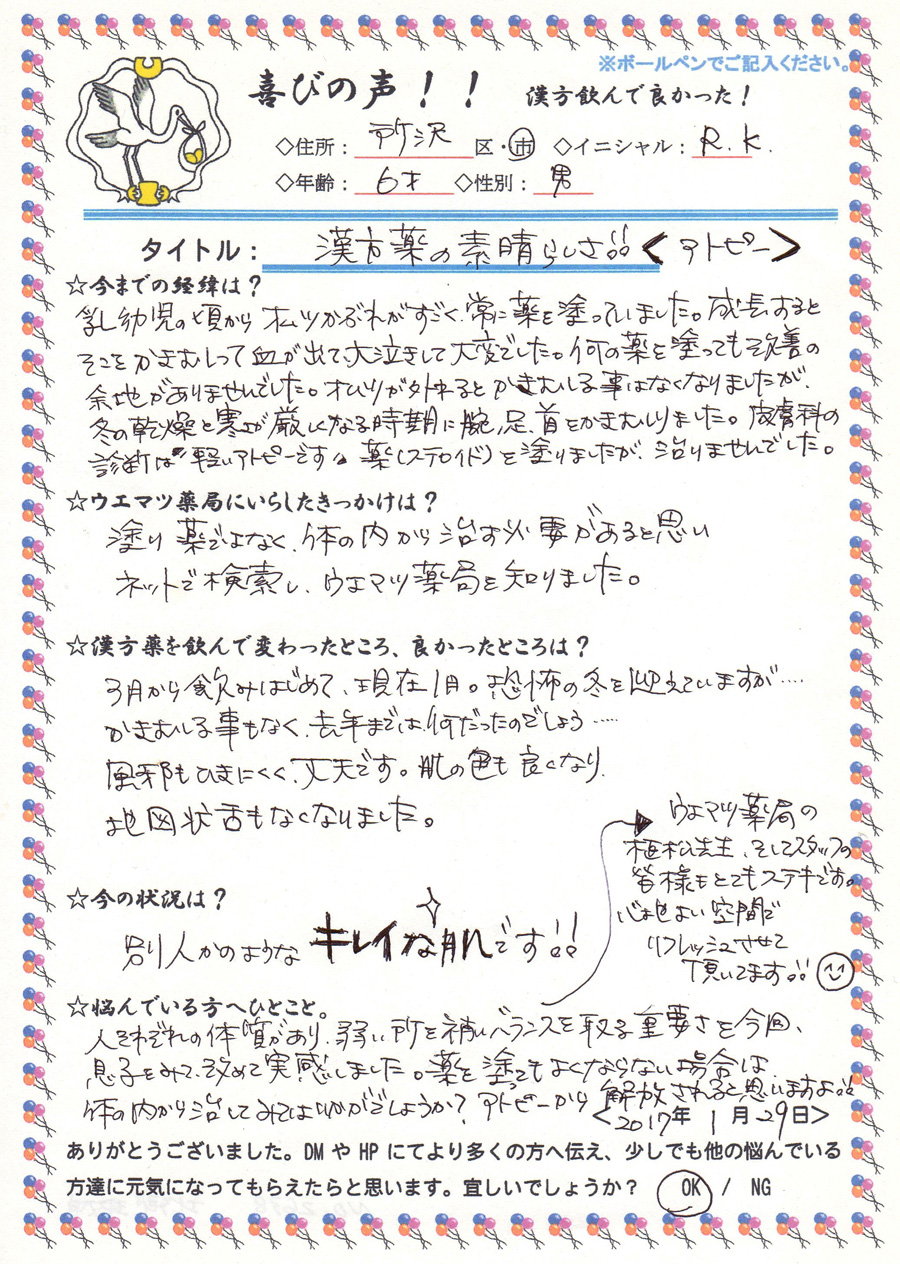 ※ボールペンでご記入ください。
喜びの声！！ 漢方飲んで良かった！
◇住所：所沢 区・市 ◇イニシャル：R.K.
◇年齢：6才 ◇性別：男
タイトル：漢方薬の素晴らしさ!!＜アトピー＞
☆今までの経緯は？
乳幼児の頃からオムツかぶれがすごく、常に薬を塗っていました。成長すると
そこをかきむしって血が出て、大泣きして大変でした。何の薬を塗っても改善の
余地がありませんでした。オムツが外れるとかきむしる事はなくなりましたが、
冬の乾燥と寒さが厳しくなる時期に腕、足、首をかきむしりました。皮膚科の
診断は"軽いアトピーです"薬(ステロイド)を塗りましたが、治りませんでした。
☆ウエマツ薬局にいらしたきっかけは？
塗り薬でなく、体の内から治す必要があると思い
ネットで検索し、ウエマツ薬局を知りました。
☆漢方薬を飲んで変わったところ、良かったところは？
3月から飲みはじめて、現在1月。恐怖の冬を迎えていますが‥‥
かきむしる事もなく、去年までは何だったのでしょう‥‥
風邪もひきにくく、丈夫です。肌の色も良くなり、
地図状舌もなくなりました。
☆今の状況は？
別人かのようなキレイな肌です!!
ウエマツ薬局の
植松先生、そしてスタッフの
皆様もとてもステキです。
心地よい空間で
リフレッシュさせて
頂いてます!!
☆悩んでいる方へひとこと。
人それぞれの体質があり、弱い所を補いバランスを取る重要さを今回、
息子をみて、改めて実感しました。薬を塗ってもよくならない場合は、
体の内から治してみてはいかがでしょうか？アトピーから解放されると思いますよ!!
＜2017年 1月29日＞
ありがとうございました。DM や HP にてより多くの方へ伝え、少しでも他の悩んでいる
方達に元気になってもらえたらと思います。宜しいでしょうか？ OK / NG